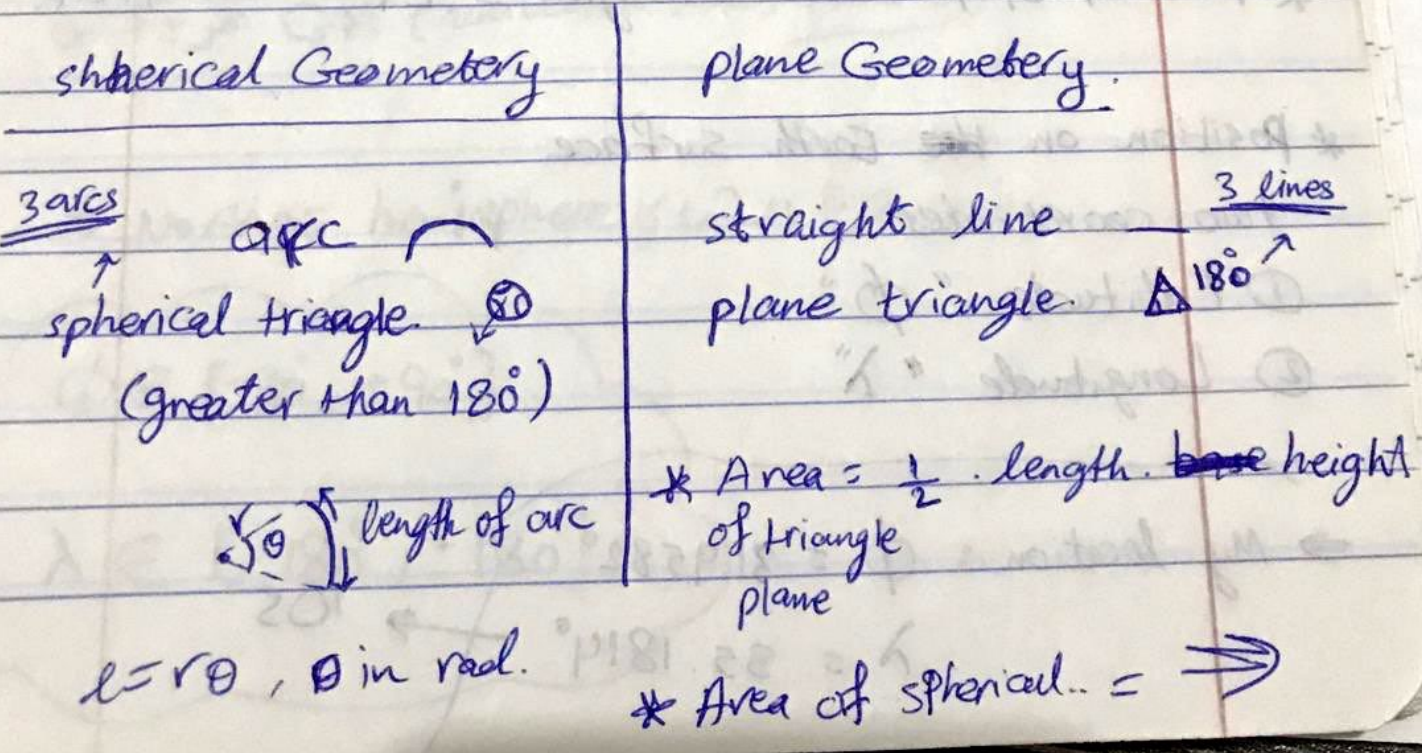 shherical Geometery
3 arcs
arc
spherical triangle.
(greater than 180°)
r θ length of arc
l = rθ, θ in rad.
plane Geometery.
3 lines
straight line
plane triangle. 180°
* Area = 1/2 . length. height
of triangle
plane
* Area of spherical.. =